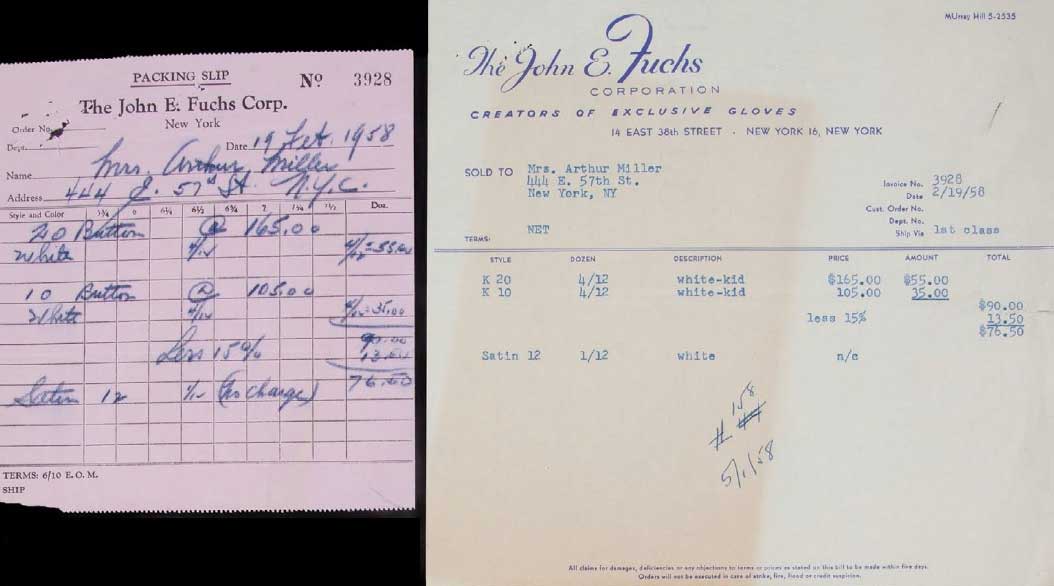 PACKING SLIP
No 3928
The John E. Fuchs Corp.
New York
Order No.
Dept.
Date 19 Feb. 1958
Name Mrs. Arthur Miller
Address 444 E. 57th St. N.Y.C.
Style and Color 5¾ 6 6¼ 6½ 6¾ 7 7¼ 7½ Doz.
20 Button @ 165.00
White 4/12 4/12 = 55.00
10 Button @ 105.00
White 4/12 4/12 = 35.00
90.00
Less 15% 13.50
76.50
Satin 12 1/12 (no charge)
TERMS: 6/10 E. O. M.
SHIP
MUrray Hill 5-2535
The John E. Fuchs
CORPORATION
CREATORS OF EXCLUSIVE GLOVES
14 EAST 38th STREET . NEW YORK 16, NEW YORK
SOLD TO Mrs. Arthur Miller
444 E. 57th St.
New York, NY
Invoice No. 3928
Date 2/19/58
Cust. Order No.
Dept. No.
Ship Via 1st class
TERMS: NET
STYLE DOZEN DESCRIPTION PRICE AMOUNT TOTAL
K 20 4/12 white-kid $165.00 $55.00
K 10 4/12 white-kid 105.00 35.00
$90.00
less 15% 13.50
$76.50
Satin 12 1/12 white n/c
# 158
5/1/58
All claims for damages, deficiencies or any objections to terms or prices as stated on this bill to be made within five days.
Orders will not be executed in case of strike, fire, flood or credit suspicion.